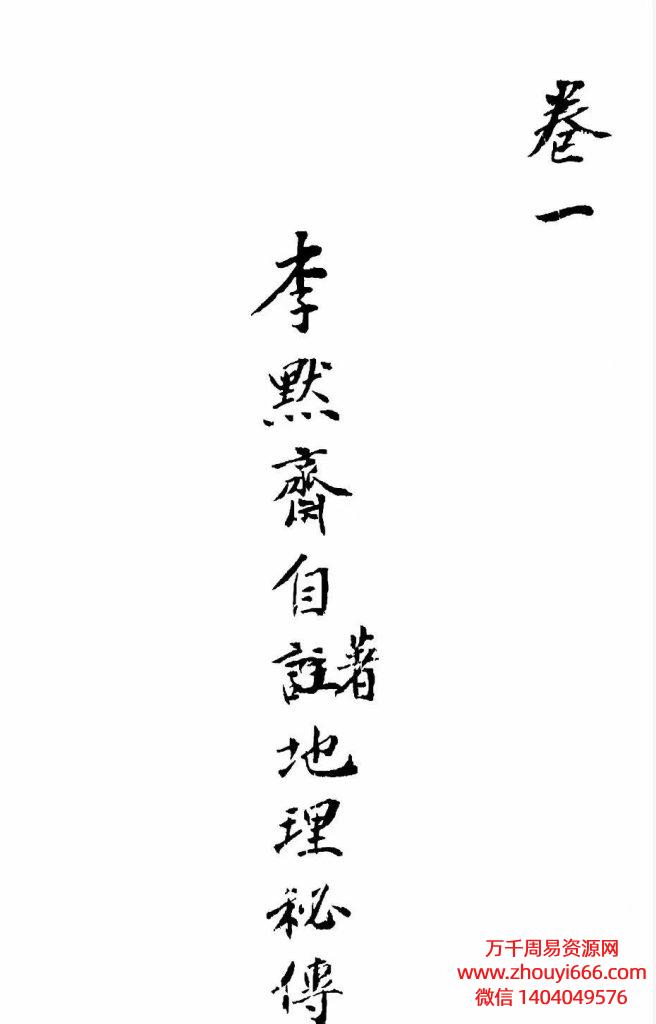 卷一
李默齋自註著地理秘傳
万千周易资源网
www.zhouyi666.com
微信 1404049576